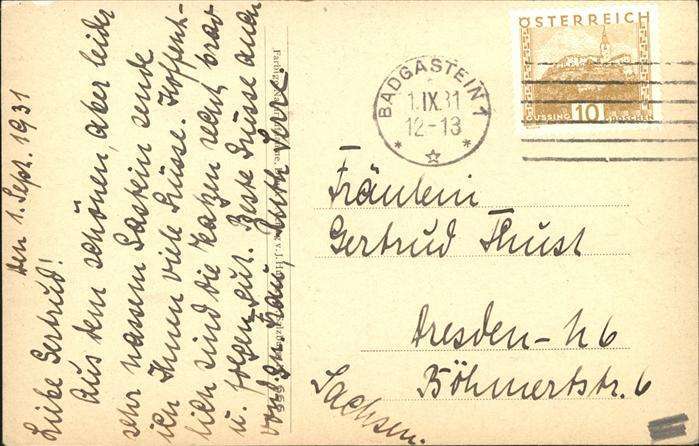 den 1. Sept. 1931
Liebe Gertrud!
Aus dem schönen, aber leider
sehr nassem Gastein sende
ich Ihnen viele Grüsse. Hoffent-
lich sind die Katzen recht brav
u. folgen gut. Beste Grüsse auch
von
ÖSTERREICH
GÜSSING
10
BADGASTEIN 1
1.IX.31
12-13
Fräulein
Gertrud Thust
Dresden-N 6
Böhmertstr. 6
Sachsen.